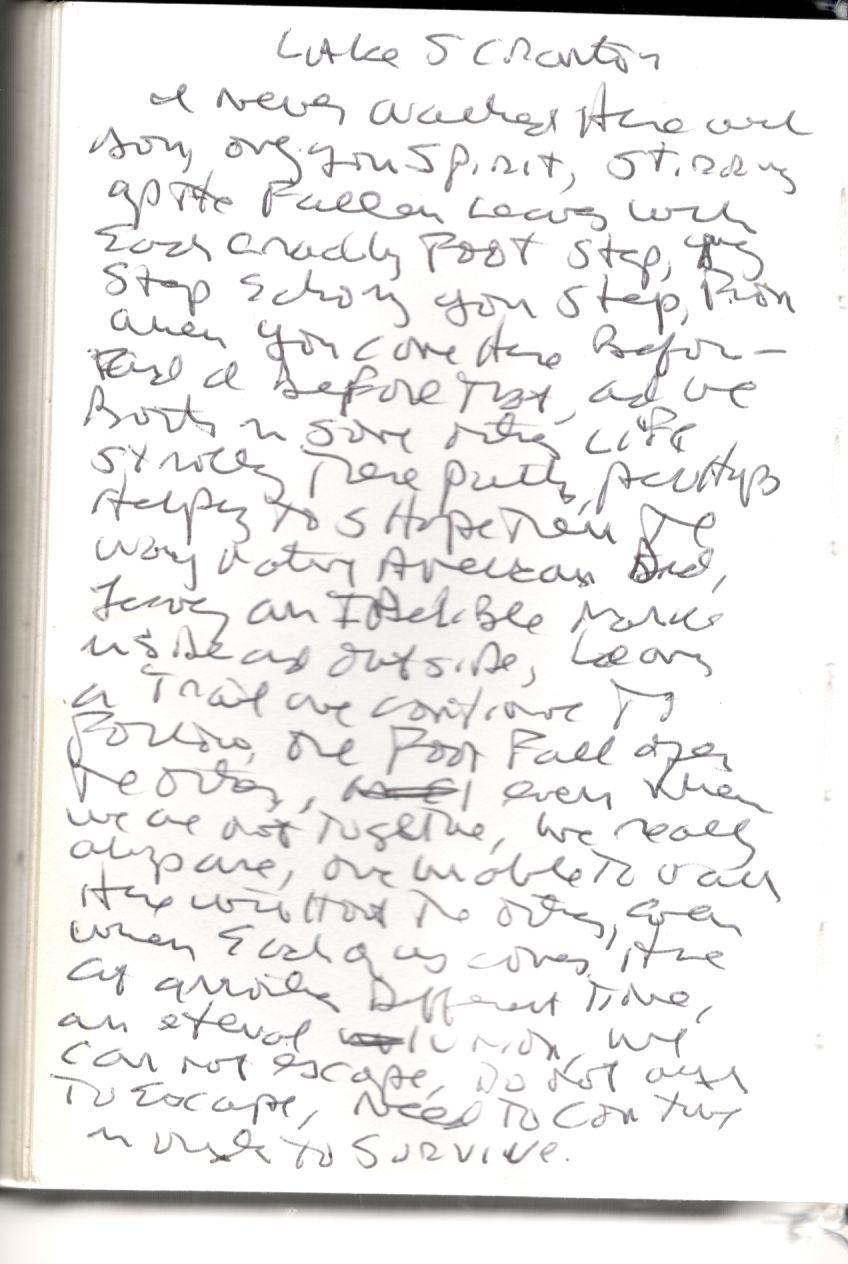 Lake Scranton
I never walked Here and
you, only you Spirit, Stirring
up the Fallen Leaves with
Each Foot Step, my
Step Echoing your Step, From
when you come Here Before—
and I Before That, and we
Both in some other Life
strolled These paths, perHAps
Helping to SHape Them The
way Native American Did,
Leaving an IndeliBle Mark
inside and outside, Leaving
a Trail we continue To
Follow, one Foot Fall after
The other, even when
we are not Together, we really
always are, one unable To walk
Here witHout The other, even
when Each of us comes Here
at another Different Time,
an eternal union, we
can not escape, Do Not want
To Escape, Need To Continue
in order To Survive.